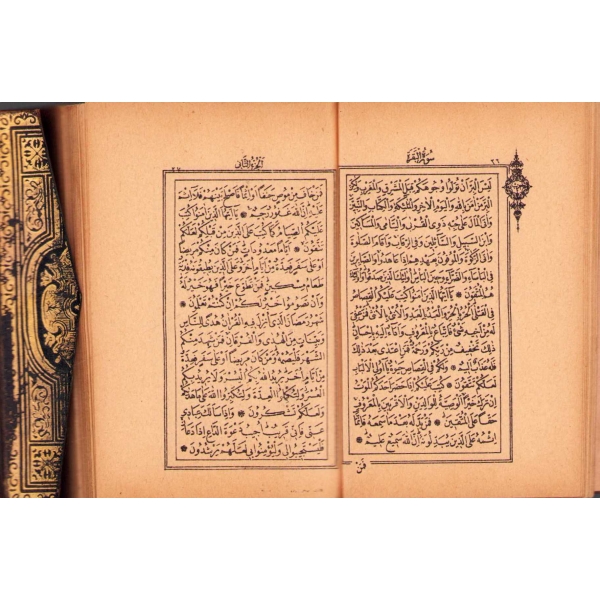 سورة البقرة
٢٦
لَيْسَ الْبِرَّ أَنْ تُوَلُّوا وُجُوهَكُمْ قِبَلَ الْمَشْرِقِ وَالْمَغْرِبِ وَلٰكِنَّ
الْبِرَّ مَنْ اٰمَنَ بِاللّٰهِ وَالْيَوْمِ الْاٰخِرِ وَالْمَلٰئِكَةِ وَالْكِتَابِ وَالنَّبِيِّنَ
وَاٰتَى الْمَالَ عَلٰى حُبِّهِ ذَوِي الْقُرْبٰى وَالْيَتَامٰى وَالْمَسَاكِينَ
وَابْنَ السَّبِيلِ وَالسَّائِلِينَ وَفِي الرِّقَابِ وَاَقَامَ الصَّلٰوةَ
وَاٰتَى الزَّكٰوةَ وَالْمُوفُونَ بِعَهْدِهِمْ اِذَا عَاهَدُوا وَالصَّابِرِينَ
فِي الْبَأْسَاءِ وَالضَّرَّاءِ وَحِينَ الْبَأْسِ اُولٰئِكَ الَّذِينَ صَدَقُوا وَاُولٰئِكَ
هُمُ الْمُتَّقُونَ * يَا اَيُّهَا الَّذِينَ اٰمَنُوا كُتِبَ عَلَيْكُمُ الْقِصَاصُ
فِي الْقَتْلٰى اَلْحُرُّ بِالْحُرِّ وَالْعَبْدُ بِالْعَبْدِ وَالْاُنْثٰى بِالْاُنْثٰى فَمَنْ عُفِيَ
لَهُ مِنْ اَخِيهِ شَيْءٌ فَاتِّبَاعٌ بِالْمَعْرُوفِ وَاَدَاءٌ اِلَيْهِ بِاِحْسَانٍ
ذٰلِكَ تَخْفِيفٌ مِنْ رَبِّكُمْ وَرَحْمَةٌ فَمَنِ اعْتَدٰى بَعْدَ ذٰلِكَ
فَلَهُ عَذَابٌ اَلِيمٌ * وَلَكُمْ فِي الْقِصَاصِ حَيٰوةٌ يَا اُولِي الْاَلْبَابِ
لَعَلَّكُمْ تَتَّقُونَ * كُتِبَ عَلَيْكُمْ اِذَا حَضَرَ اَحَدَكُمُ الْمَوْتُ
اِنْ تَرَكَ خَيْرًا الْوَصِيَّةُ لِلْوَالِدَيْنِ وَالْاَقْرَبِينَ بِالْمَعْرُوفِ
حَقًّا عَلَى الْمُتَّقِينَ * فَمَنْ بَدَّلَهُ بَعْدَ مَا سَمِعَهُ فَاِنَّمَا
اِثْمُهُ عَلَى الَّذِينَ يُبَدِّلُونَهُ اِنَّ اللّٰهَ سَمِيعٌ عَلِيمٌ *
فمن
الجزء الثانى
٢٧
فَمَنْ خَافَ مِنْ مُوصٍ جَنَفًا اَوْ اِثْمًا فَاَصْلَحَ بَيْنَهُمْ فَلَا اِثْمَ
عَلَيْهِ اِنَّ اللّٰهَ غَفُورٌ رَحِيمٌ * يَا اَيُّهَا الَّذِينَ اٰمَنُوا كُتِبَ
عَلَيْكُمُ الصِّيَامُ كَمَا كُتِبَ عَلَى الَّذِينَ مِنْ قَبْلِكُمْ لَعَلَّكُمْ
تَتَّقُونَ * اَيَّامًا مَعْدُودَاتٍ فَمَنْ كَانَ مِنْكُمْ مَرِيضًا
اَوْ عَلٰى سَفَرٍ فَعِدَّةٌ مِنْ اَيَّامٍ اُخَرَ وَعَلَى الَّذِينَ يُطِيقُونَهُ فِدْيَةٌ
طَعَامُ مِسْكِينٍ فَمَنْ تَطَوَّعَ خَيْرًا فَهُوَ خَيْرٌ لَهُ
وَاَنْ تَصُومُوا خَيْرٌ لَكُمْ اِنْ كُنْتُمْ تَعْلَمُونَ *
شَهْرُ رَمَضَانَ الَّذِي اُنْزِلَ فِيهِ الْقُرْاٰنُ هُدًى لِلنَّاسِ
وَبَيِّنَاتٍ مِنَ الْهُدٰى وَالْفُرْقَانِ فَمَنْ شَهِدَ مِنْكُمُ
الشَّهْرَ فَلْيَصُمْهُ وَمَنْ كَانَ مَرِيضًا اَوْ عَلٰى سَفَرٍ فَعِدَّةٌ
مِنْ اَيَّامٍ اُخَرَ يُرِيدُ اللّٰهُ بِكُمُ الْيُسْرَ وَلَا يُرِيدُ بِكُمُ
الْعُسْرَ وَلِتُكْمِلُوا الْعِدَّةَ وَلِتُكَبِّرُوا اللّٰهَ عَلٰى مَا هَدٰيكُمْ
وَلَعَلَّكُمْ تَشْكُرُونَ * وَاِذَا سَاَلَكَ عِبَادِي
عَنِّي فَاِنِّي قَرِيبٌ اُجِيبُ دَعْوَةَ الدَّاعِ اِذَا دَعَانِ
فَلْيَسْتَجِيبُوا لِي وَلْيُؤْمِنُوا بِي لَعَلَّهُمْ يَرْشُدُونَ *